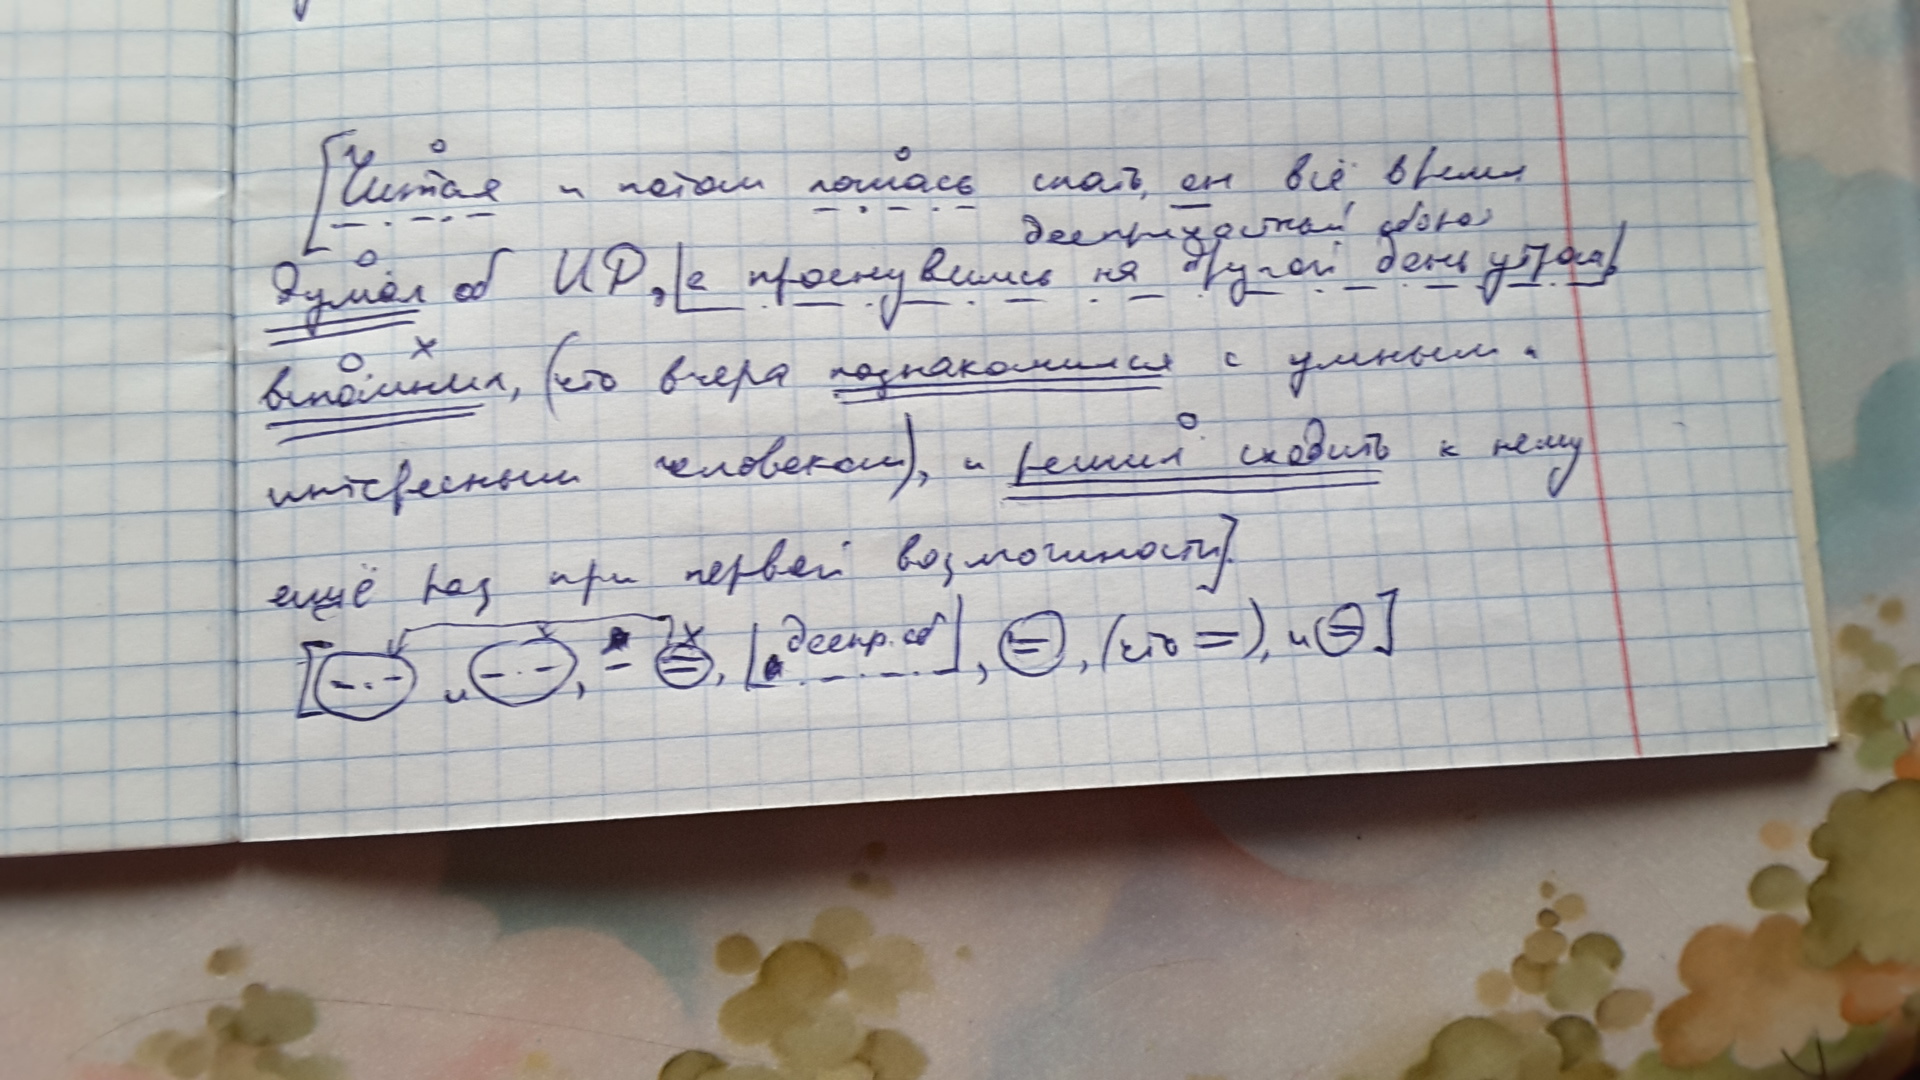 [Читая и потом ложась спать, он всё время
деепричастный оборот
думал об ИФ, |а проснувшись на другой день утром|
вспомнил, (что вчера познакомился с умным и
интересным человеком), и решил сходить к нему
ещё раз при первой возможности].
[-.- и -.-, - =, |деепр. об|, =, (что =), и =]